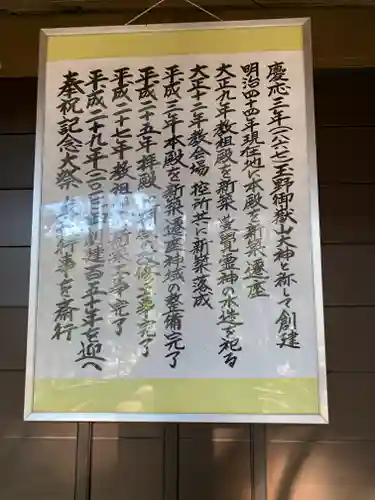 慶応三年(一八六七)玉野御嶽山大神と称して創建
明治四十四年現在地に本殿を新築遷座
大正九年教祖殿を新築 普寛霊神の木造を祀る
大正十二年教会場 控所共に新築落成
平成三年本殿を新築遷座神域の整備完了
平成二十五年拝殿 改修工事完了
平成二十七年教祖 新築工事完了
平成二十九年(二〇一七)創建百五十年を迎へ
奉祝記念大祭 行事を斎行